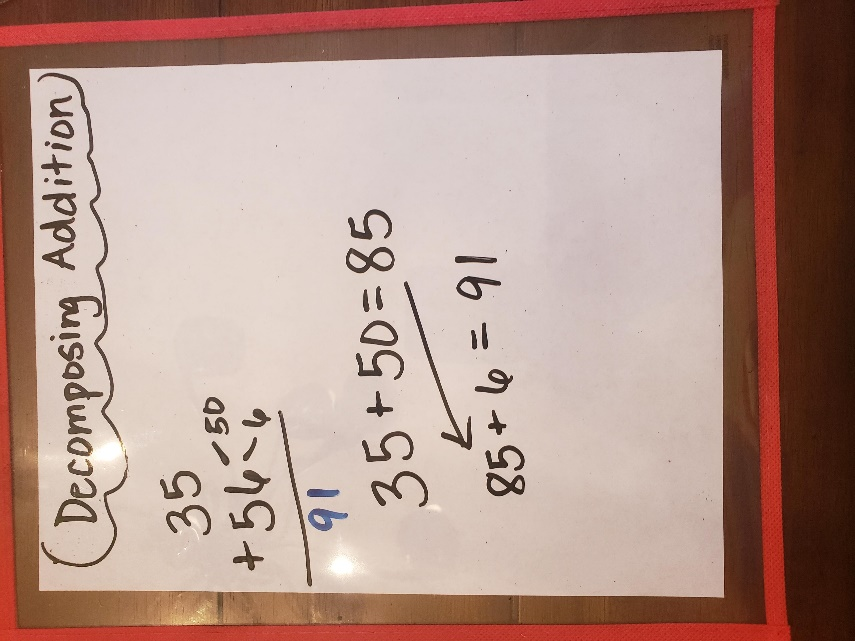 Decomposing Addition
35
+ 56 < 50
6
91
35 + 50 = 85
85 + 6 = 91